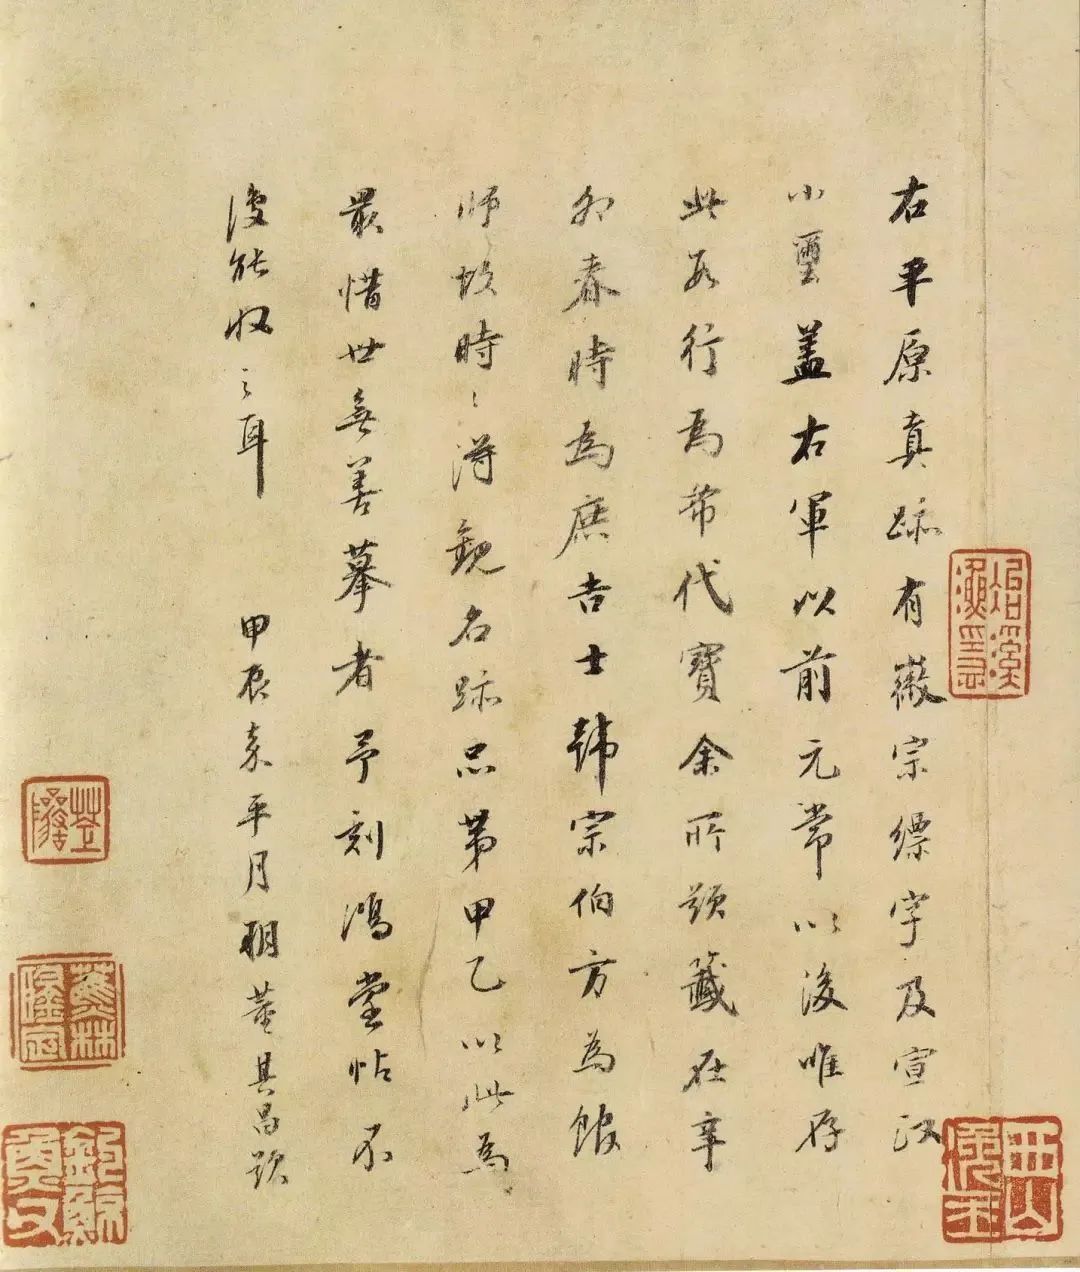 右平原真跡有徽宗縹字及宣政
小璽蓋右軍以前元常以後唯存
此數行為希代寶余所題籤在辛
卯春時為庶吉士韓宗伯方為館
師故時〻得觀名跡品第甲乙以此為
最惜世無善摹者予刻鴻堂帖不
復能收之耳 甲辰嘉平月朔董其昌題